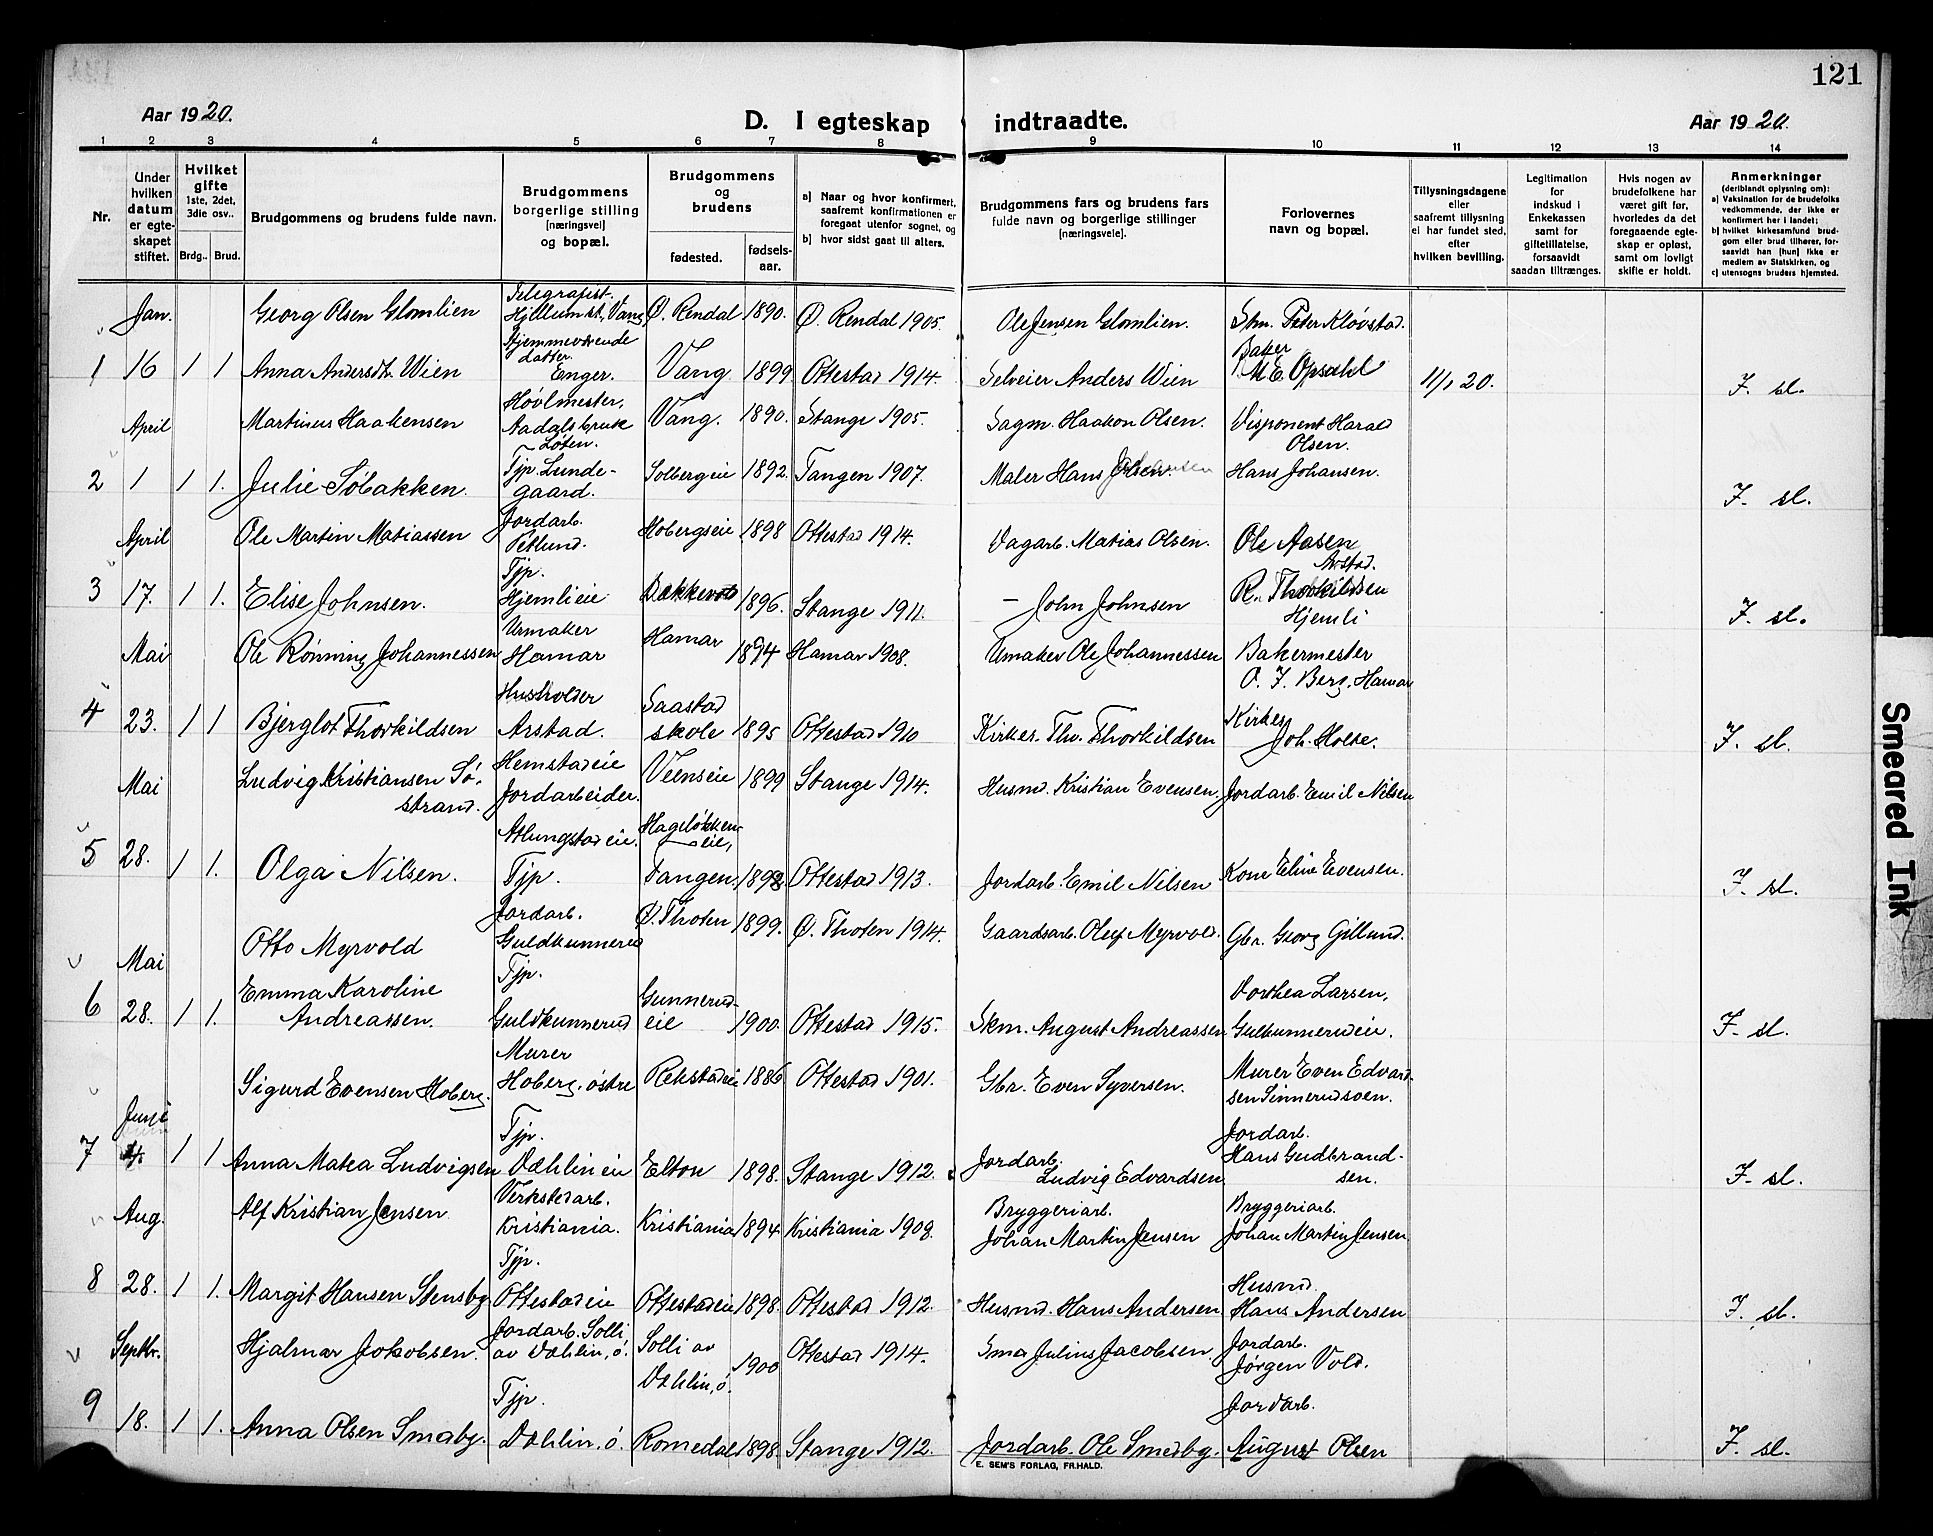 121
Aar 1920.
D. I egteskap indtraadte.
Aar 1920.
1 2 3 4 5 6 7 8 9 10 11 12 13 14
Nr.
Under hvilken datum er egteskapet stiftet.
Hvilket gifte 1ste, 2det, 3die osv..
Brdg.. Brud.
Brudgommens og brudens fulde navn.
Brudgommens borgerlige stilling [næringsvei] og bopæl.
Brudgommens og brudens
fødested.
fødselsaar.
a) Naar og hvor konfirmert, saafremt konfirmationen er foregaat utenfor sognet, og
b) hvor sidst gaat til alters.
Brudgommens fars og brudens fars fulde navn og borgerlige stillinger [næringsveie].
Forlovernes navn og bopæl.
Tillysningsdagene eller saafremt tillysning ei har fundet sted, efter hvilken bevilling.
Legitimation for indskud i Enkekassen samt for giftetilladelse, forsaavidt saadan tiltrænges.
Hvis nogen av brudefolkene har været gift før, hvorledes da det foregaaende egteskap er opløst, samt om lovligt skifte er holdt.
Anmerkninger (deriblandt oplysning om):
a) Vaksination for de brudefolks vedkommende, der ikke er konfirmert her i landet;
b) hvilket kirkesamfund brudgom eller brud tilhører, forsaavidt han [hun] ikke er medlem av Statskirken, og
c) utensogns bruders hjemsted.
Jan. Georg Olsen Glomlien Telegrafist. Hjellum st., Vang Ø. Rendal 1890. Ø. Rendal 1905. Ole Jensen Glomlien. Skm. Peter Kløvstad.
1 16 1 1 Anna Andersdt. Wien Hjemmeværende datter. Enger. Vang. 1899 Ottestad 1914. Selveier Anders Wien Baker M. E. Opsahl 11/1 20. F. sl.
April Martinus Haakensen Høvlmester, Aadalsbruk Løten. Vang. 1890. Stange 1905. Sagm. Haakon Olsen. Disponent Harald Olsen.
2 1 1 1. Julie Søbakken. Tjp. Lundegaard. Solbergeie 1892. Tangen 1907. Maler Hans Hans Johansen. F. sl.
April Ole Martin Matiassen Jordarb. Petlund. Hobergseie 1898 Ottestad 1914. Dagarb. Matias Olsen. Ole Aasen Arstad.
3 17. 1 1. Elise Johnsen. Tjp. Hjemlieie 1896. Stange 1911. — John Johnsen R. Thorkildsen Hjemli F. sl.
Mai Ole Rønning Johannessen Urmaker Hamar Hamar 1894 Hamar 1908. Umaker Ole Johannessen Bakermester O. J. Berg, Hamar
4 23. 1 1 Bjerglot Thorkildsen Husholder Arstad. Saastad skole 1895 Ottestad 1910 Kirkes. Th. Thorkildsen Kirkes Joh. Holte. F. sl.
Mai Ludvig Kristiansen Søstrand. Hemstadeie Jordarbeider. Veenseie 1899 Stange 1914. Husmd. Kristian Evensen. Jordarb. Emil Nilsen
5 28. 1 1. Olga Nilsen. Atlungstadeie. Tjp. Hageløkkeneie, Tangen. 1898 Ottestad 1913. Jordarb. Emil Nilsen Kone Eline Evensen. F. sl.
Mai Otto Myrvold Jordarb. Guldkunnerud Ø. Thoten 1899. Ø. Thoten 1914. Gaardsarb. Oluf Myrvold. Gbr. Georg Gillund.
6 28. 1 1. Emma Karoline Andreassen. Tjp. Guldkunnerud Gunnerudeie 1900. Ottestad 1915. Skm. August Andreassen Dorthea Larsen, Gulkunnerudeie. F. sl.
Juni Sigurd Evensen Hoberg. Murer Hoberg, østre Rekstadeie 1886 Ottestad 1901. Gbr. Even Syversen. Murer Even Edvardsen Sinnerudsveen.
7 1 1 Anna Matea Ludvigsen Tjp. Dæhlin eie Elton 1898. Stange 1912. Jordarb. Ludvig Edvardsen Jordarb. Hans Gudbrandsen. F. sl.
Aug. Alf Kristian Jensen Verkstedarb. Kristiania. Kristiania 1894 Kristiania 1908. Bryggeriarb. Johan Martin Jensen Bryggeriarb. Johan Martin Jensen
8 28. 1 1. Margit Hansen Stensby Tjp. Ottestadeie Ottestadeie 1898. Ottestad 1912. Husmd. Hans Andersen. Husmd. Hans Andersen F. sl.
Septbr. Hjalmar Jakobsen. Jordarb. Solli av Dæhlin, ø. Solli av Dæhlin, ø. 1900 Ottestad 1914. Sma Julius Jacobsen. Jordarb. Jørgen Vold.
9 18. 1 1. Anna Olsen Smeby. Tjp. Dæhlin, ø. Romedal 1898. Stange 1912. Jordarb. Ole Smedby. Jordarb. August Olsen F. sl.
E. SEM'S FORLAG, FR.HALD.
Smeared Ink